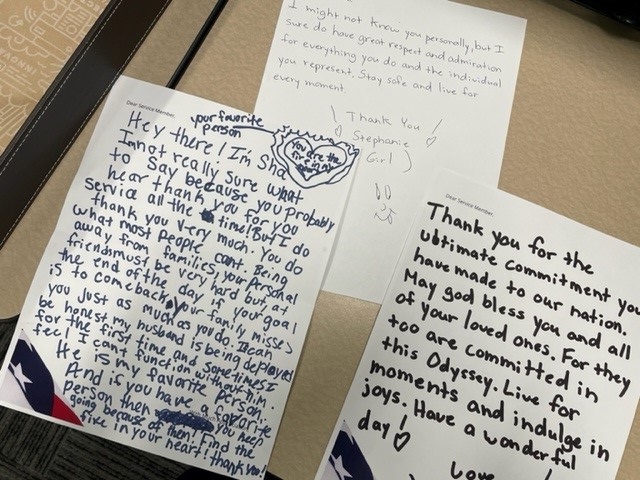 I might not know you personally, but I
sure do have great respect and admiration
for everything you do and the individual
you represent. Stay safe and live for
every moment.
Thank You
Stephanie
Girl )
Dear Service Member,
your favorite
person
Hey there! I'm Sha
You are the
fire in my
heart!
I'm not really sure what
to say because you probably
hear thank you for you
service all the time! But I do
thank you very much. You do
what most people cant. Being
away from families, your personal
friends must be very hard but, at
the end of the day if your goal
is to come back, your family misses
you just as much as you do. I can
be honest my husband is being deployed
for the first time and sometimes I
feel I cant function without him.
He is my favorite person.
And if you have a favorite
person then you keep
going because of them! Find the
fire in your heart! thank you!
Dear Service Member,
Thank you for the
ubtimate commitment you
have made to our nation.
May god bless you and all
of your loved ones. For they
too are committed in
this Odyssey. Live for
moments and indulge in
joys. Have a wonderful
day!
Love